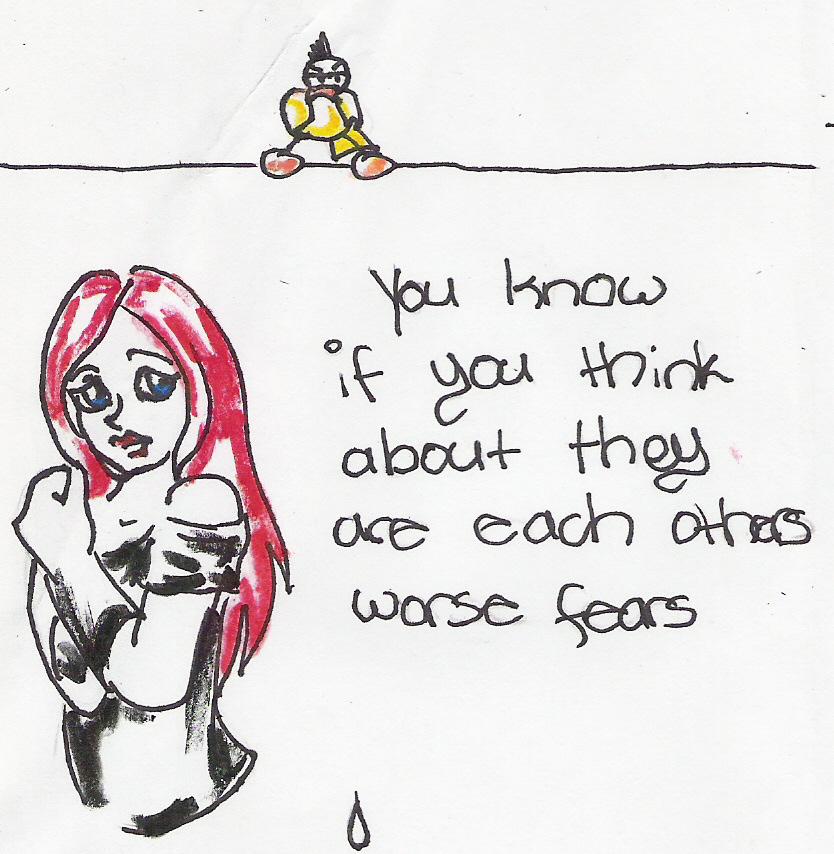 You know
if you think
about they
are each others
worse fears